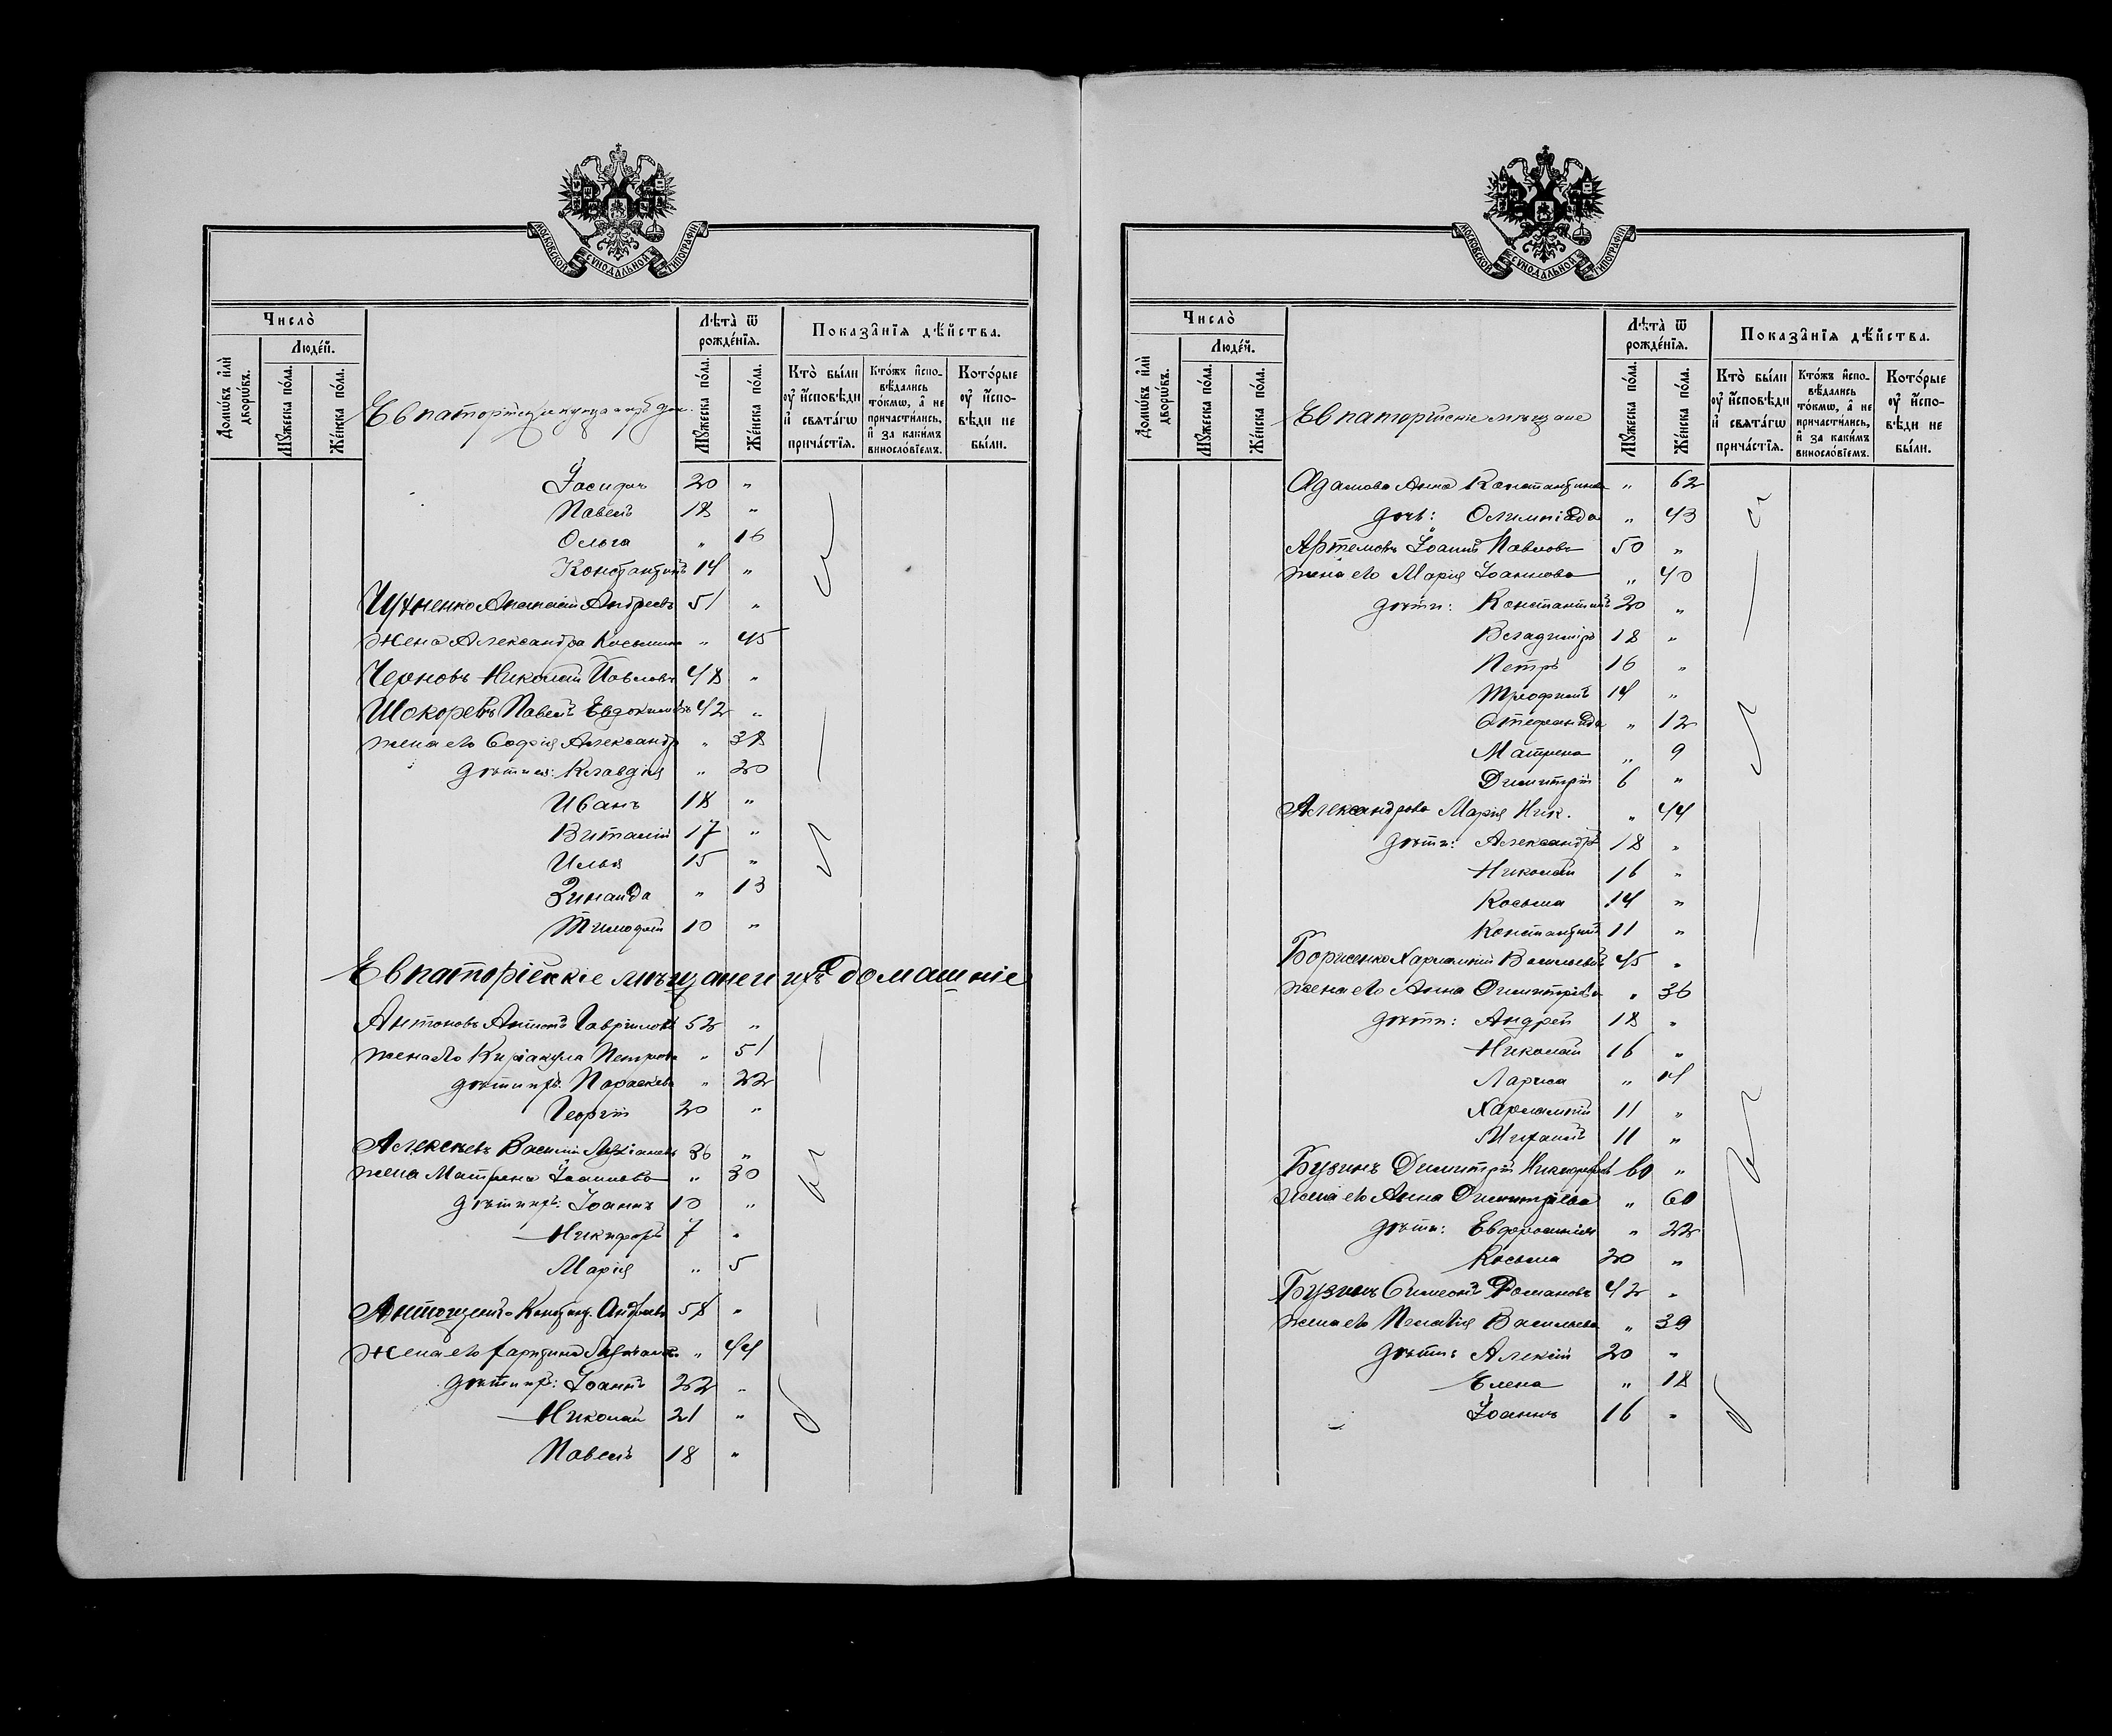 МОСКОВСКОЙ СѴНОДАЛЬНОЙ ТИПОГРАФІИ
Число̀
Домѡ́въ и҆лѝ дворѡ́въ.
Люде́й.
Мꙋ́жеска по́ла.
Же́нска по́ла.
Лѣта̀ ѿ рожде́нїѧ.
Мꙋ́жеска по́ла.
Же́нска по́ла.
Показа̑нїѧ дѣ́йства.
Кто̀ бы́ли ᲂу҆ и҆сповѣ́ди и҆ свѧта́гѡ прича́стїѧ.
Кто́жъ и҆сповѣ́дались то́кмѡ, а҆ не причасти́лись, и҆ за каки́мъ виносло́вїемъ.
Кото́рые ᲂу҆ и҆сповѣ́ди не бы́ли.
Іосифъ 20 "
Павелъ 18 "
Ольга " 16
Константинъ 14 "
Чухненко Анастасій Андреевъ 51 "
Жена Александра Косьмина " 45
Черновъ Николай Павловъ 48 "
Шокоревъ Павелъ Евдокимовъ 42 "
жена его Софія Александр " 38
дѣти их: Клавдія " 20
Иванъ 18 "
Виталій 17 "
Илья 15 "
Зинаида " 13
Тимофей 10 "
Евпаторійскіе мѣщане и ихъ домашніе
Антоновъ Антонъ Гавриловъ 52 "
жена его Киріакула Петрова " 51
дѣти ихъ: Параскева " 22
Георгій 20 "
Алексѣевъ Василій 36 "
жена Матрена Іоаннова " 30
дѣти ихъ: Іоаннъ 10 "
Никифоръ 7 "
Марія " 5
Антощенко Констант. Андреевъ 58 "
жена его " 44
дѣти ихъ: Іоаннъ 22 "
Николай 21 "
Павелъ 18 "
МОСКОВСКОЙ СѴНОДАЛЬНОЙ ТИПОГРАФІИ
Число̀
Домѡ́въ и҆лѝ дворѡ́въ.
Люде́й.
Мꙋ́жеска по́ла.
Же́нска по́ла.
Евпаторійскіе мѣщане
Лѣта̀ ѿ рожде́нїѧ.
Мꙋ́жеска по́ла.
Же́нска по́ла.
Показа̑нїѧ дѣ́йства.
Кто̀ бы́ли ᲂу҆ и҆сповѣ́ди и҆ свѧта́гѡ прича́стїѧ.
Кто́жъ и҆сповѣ́дались то́кмѡ, а҆ не причасти́лись, и҆ за каки́мъ виносло́вїемъ.
Кото́рые ᲂу҆ и҆сповѣ́ди не бы́ли.
Адамова Анна Константинова " 62
дочь: Олимпіада " 43
Артемовъ Іоаннъ Павловъ 50 "
жена его Марія Іоаннова " 40
дѣти: Константинъ 20 "
Владиміръ 18 "
Петръ 16 "
Трофимъ 14 "
Стефанида " 12
Матрена " 9
Димитрій 6 "
Александрова Марія Ник. " 44
дѣти: Александръ 18 "
Николай 16 "
Косьма 14 "
Константинъ 11 "
Борисенко Харлампій Васильевъ 45 "
жена его Анна Димитріева " 36
дѣти: Андрей 18 "
Николай 16 "
Лариса " 14
Харлампій 11 "
Михаилъ 11 "
Бузинъ Димитрій Никифоровъ 60 "
жена его Анна Димитріева " 60
дѣти: Евфросинія " 22
Косьма 20 "
Бузинъ Симеонъ Романовъ 42 "
жена его Пелагія Васильева " 39
дѣти: Алексій 20 "
Елена " 18
Іоаннъ 16 "